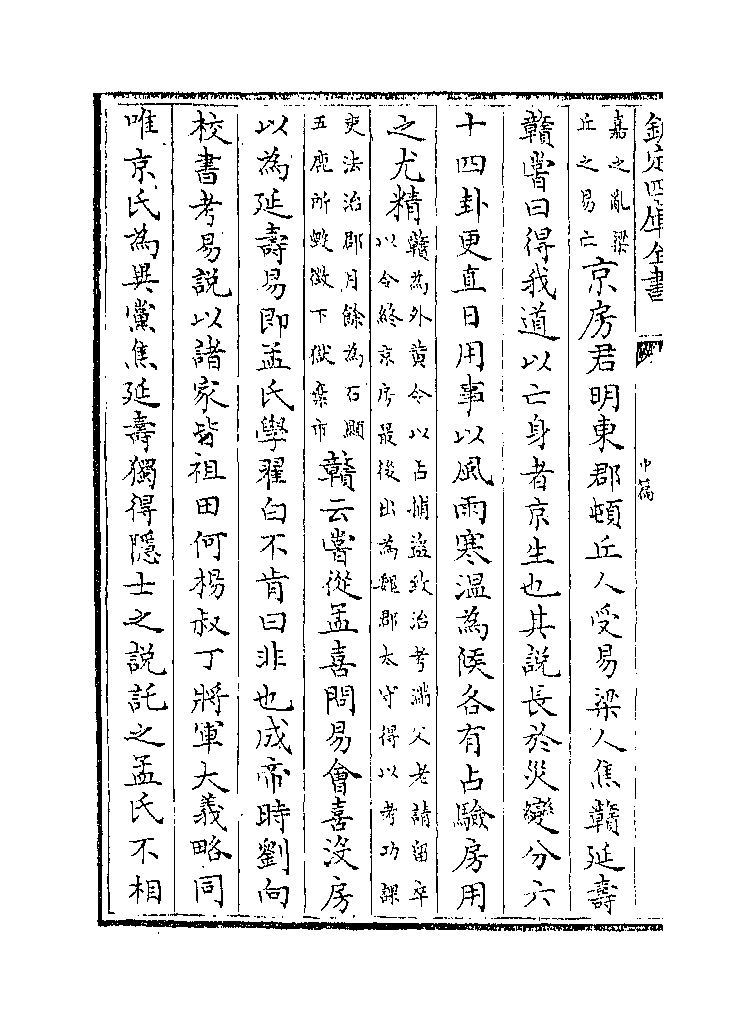 欽定四庫全書
中篇
嘉之亂梁
丘之易亡
京房君明東郡頓丘人受易梁人焦贛延壽
贛嘗曰得我道以亡身者京生也其說長於災變分六
十四卦更直日用事以風雨寒温為候各有占驗房用
之尤精
贛為外黄令以占捕盜致治考滿父老請留卒
以令終京房最後出為魏郡太守得以考功課
吏法治郡月餘為石顯
五鹿所毀徵下獄棄市
贛云嘗從孟喜問易會喜沒房
以為延壽易即孟氏學翟白不肯曰非也成帝時劉向
校書考易說以諸家皆祖田何楊叔丁將軍大義略同
唯京氏為異黨焦延壽獨得隱士之說託之孟氏不相